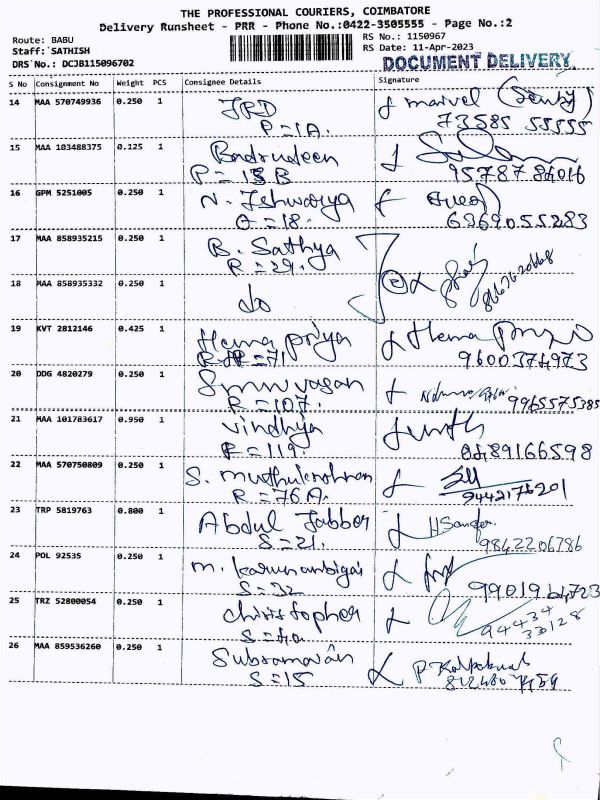 THE PROFESSIONAL COURIERS, COIMBATORE
Delivery Runsheet - PRR - Phone No.:0422-3505555 - Page No.:2
Route: BABU
RS No.: 1150967
Staff: SATHISH
RS Date: 11-Apr-2023
DRS No.: DCJB115096702
DOCUMENT DELIVERY
S No Consignment No Weight PCS Consignee Details Signature
14 MAA 570749936 0.250 1 JRD marvel
P = 1A. 73585 55555
15 MAA 103488375 0.125 1 Badrudeen
P = 15 B
16 GPM 5251005 0.250 1 N. Ishwarya
O = 18. 6369055283
17 MAA 858935215 0.250 1 B. Sathya
R = 29.
18 MAA 858935332 0.250 1 do
19 KVT 2812146 0.425 1 Hema priya Hema
= 71 9600374973
20 DDG 4820279 0.250 1
R = 107. 9965575385
21 MAA 101783617 0.950 1 Vindhya
= 119.
22 MAA 570750809 0.250 1 S. muthukrishnan
R = 76 A. 9442176201
23 TRP 5819763 0.800 1 Abdul Jabber
S = 21. 9842206786
24 POL 92535 0.250 1 m. karunambigai
S = 32
25 TRZ 52800054 0.250 1 Christopher
94434
33128
26 MAA 859536260 0.250 1 Subramanian
S = 15